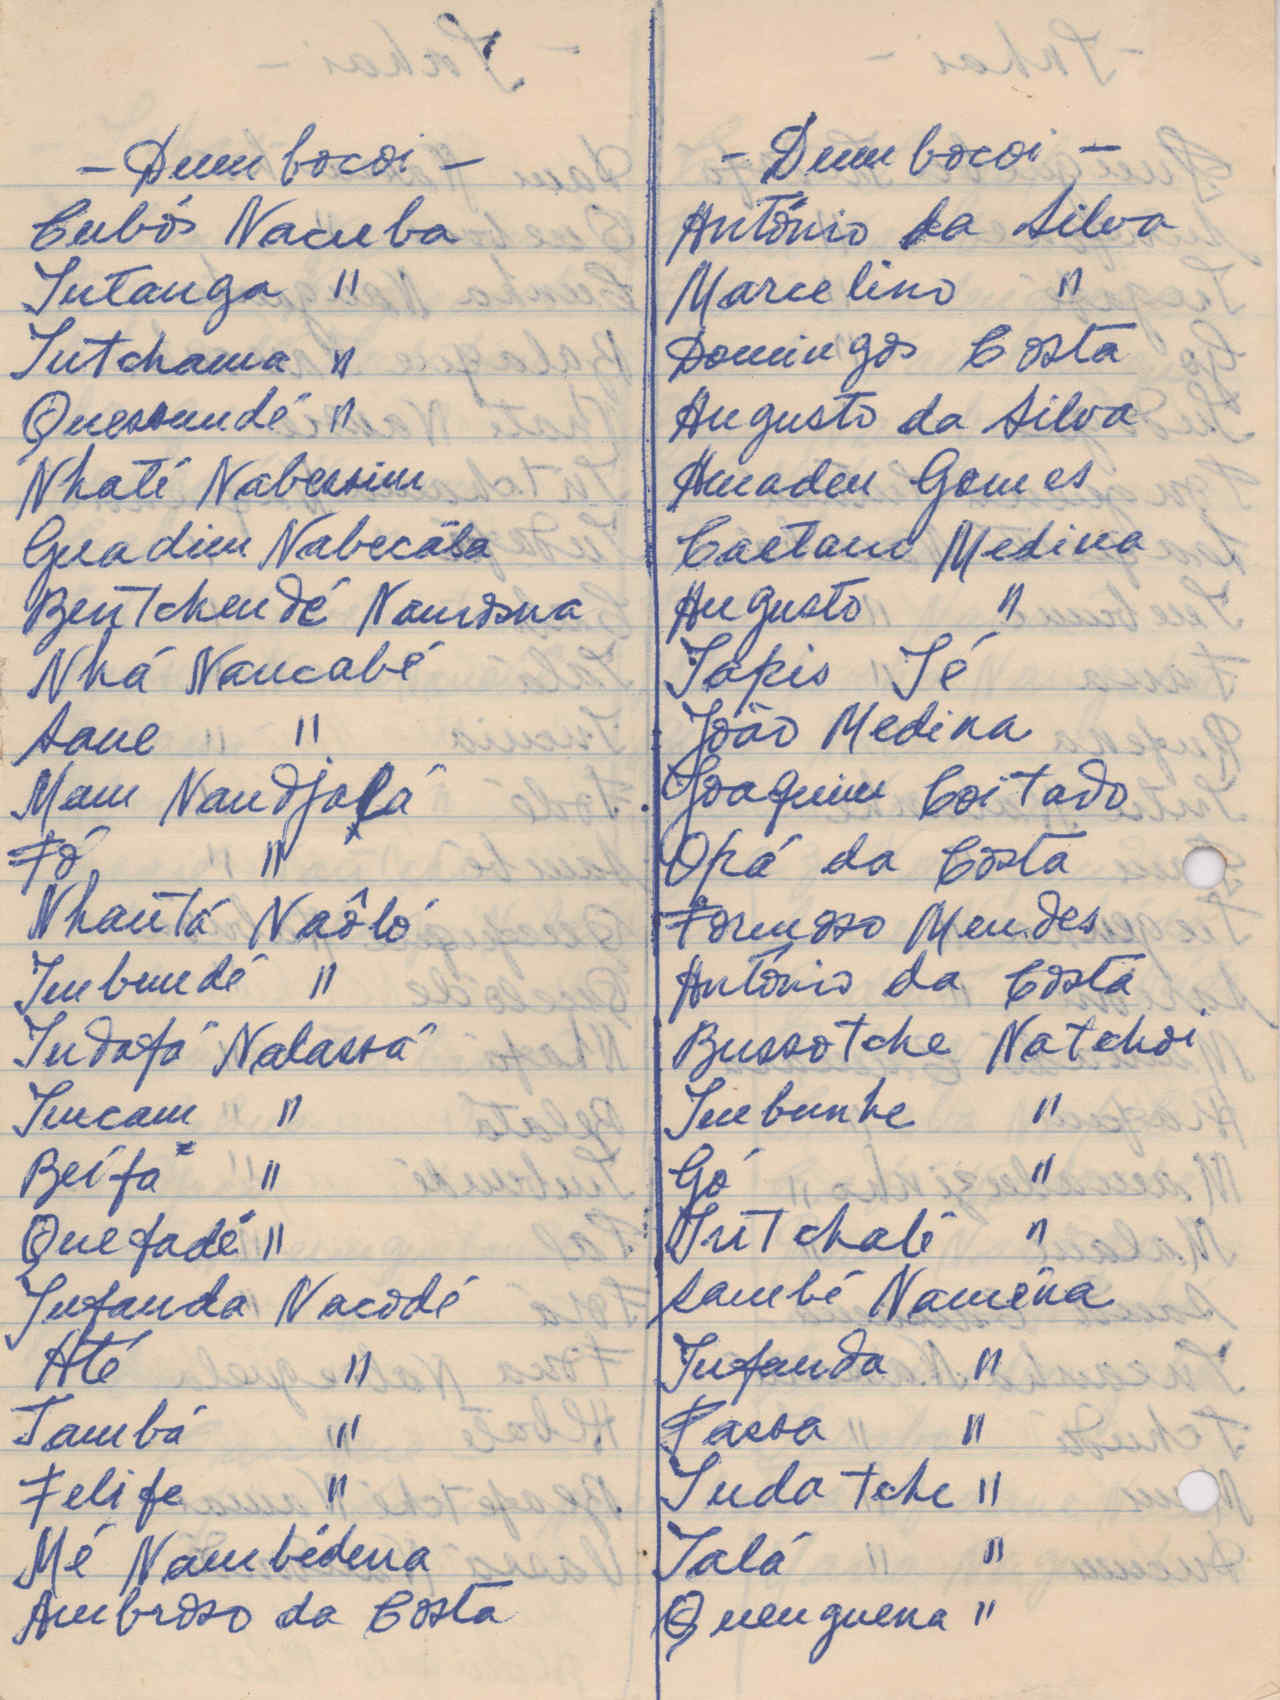 - Dum bocoi -
Cubós Nacuba
Intanga "
Intchama "
Quessundé "
Nhaté Nabessim
Guadim Nabecába
Bentchendé Namosna
Nhá Nancabé
Sane "
Mam Nandjalá
Fó "
Nhantá Naôló
Imbundé "
Indafá Nalassá
Imcam "
Beífa "
Quefadé "
Infanda Nacodé
Até "
Tambá "
Felife "
Mé Nambédena
Ambroso da Costa
- Dum bocoi -
António da Silva
Marcelino "
Domingos Costa
Augusto da Silva
Amadeu Gomes
Caetano Medina
Augusto "
Iopis Té
João Medina
Joaquim Coitado
Opá da Costa
Formoso Mendes
António da Costa
Bussotche Natchoi
Imbunhe "
Gó "
Intchalé "
Sambé Naména
Infanda "
Passa "
Indatche "
Talá "
Quenguena "